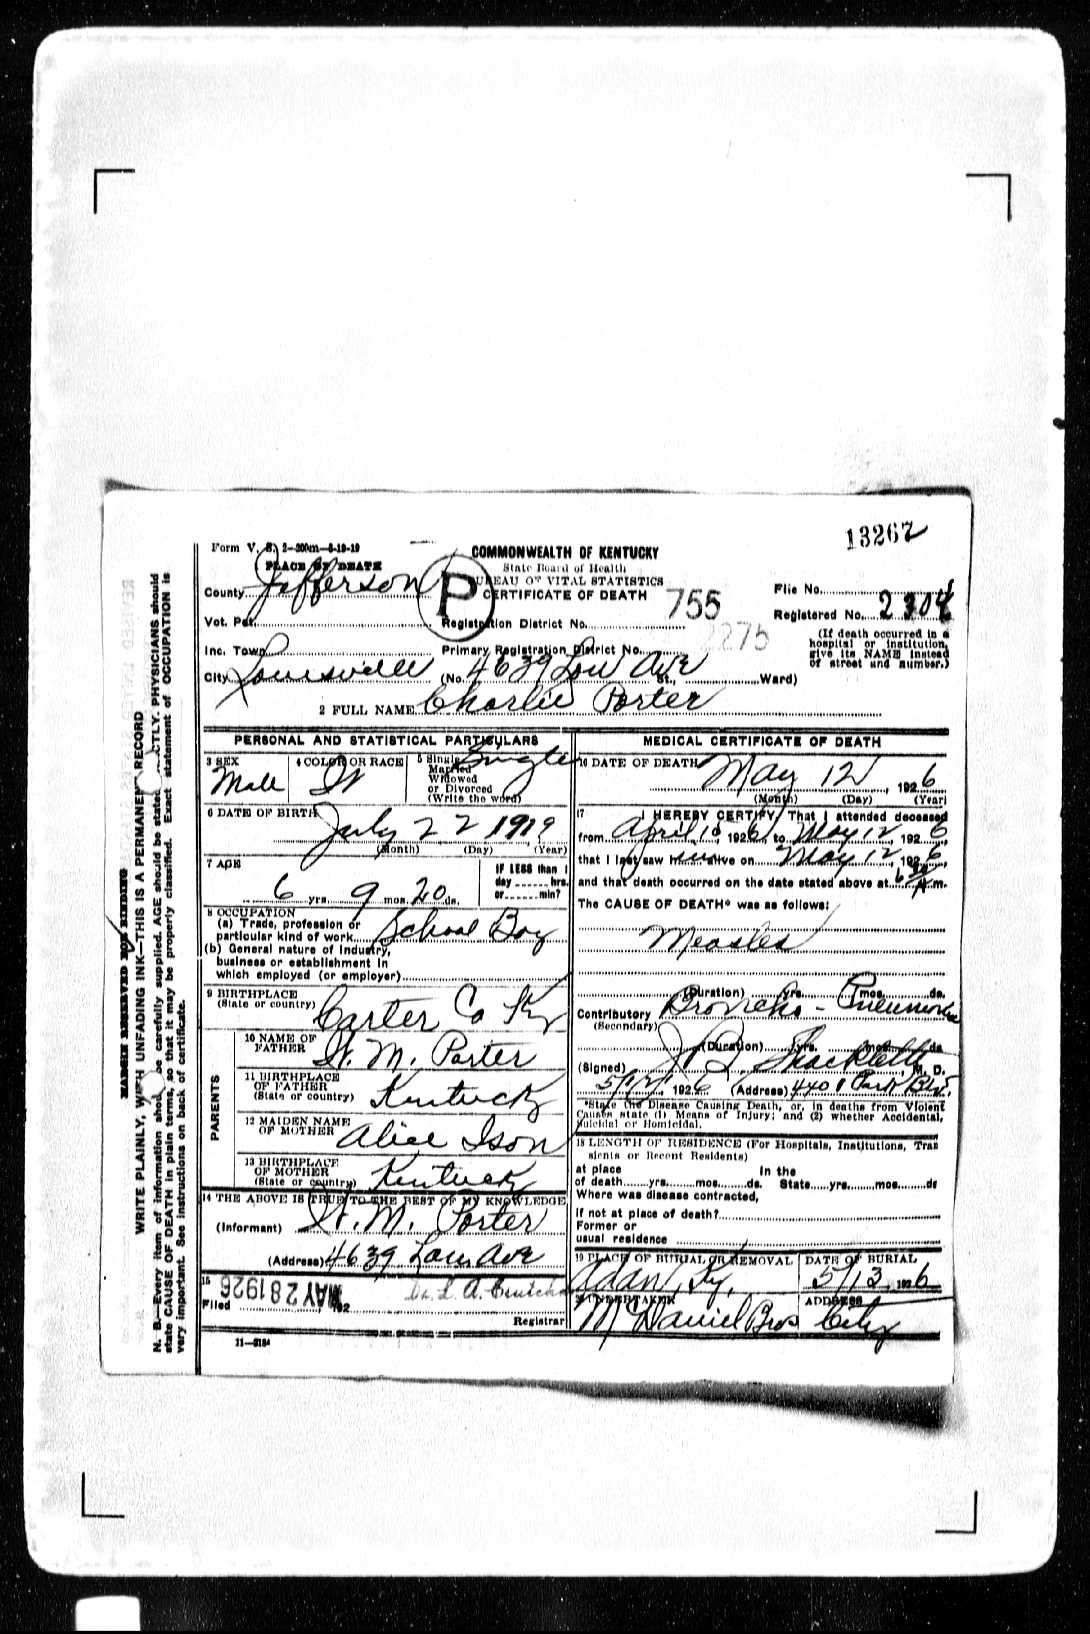 13267
Form V. S. 2—300m—8-19-19
COMMONWEALTH OF KENTUCKY
PLACE OF DEATH
State Board of Health
BUREAU OF VITAL STATISTICS
CERTIFICATE OF DEATH
P
County Jefferson
755
File No.
Registered No. 2304
Vot. Pct.
Registration District No.
2275
(If death occurred in a hospital or institution, give its NAME instead of street and number.)
Inc. Town
Primary Registration District No.
City Louisville (No. 4639 Lou Ave St., Ward)
2 FULL NAME Charlie Porter
PERSONAL AND STATISTICAL PARTICULARS
3 SEX Male
4 COLOR OR RACE W
5 Single Married Widowed or Divorced (Write the word) Single
6 DATE OF BIRTH July 22 1919
(Month) (Day) (Year)
7 AGE
6 yrs. 9 mos. 20 ds.
IF LESS than 1 day ...... hrs. or ...... min?
8 OCCUPATION
(a) Trade, profession or particular kind of work School Boy
(b) General nature of Industry, business or establishment in which employed (or employer)
9 BIRTHPLACE
(State or country) Carter Co Ky
PARENTS
10 NAME OF FATHER W. M. Porter
11 BIRTHPLACE OF FATHER (State or country) Kentucky
12 MAIDEN NAME OF MOTHER Alice Ison
13 BIRTHPLACE OF MOTHER (State or country) Kentucky
14 THE ABOVE IS TRUE TO THE BEST OF MY KNOWLEDGE
(Informant) W. M. Porter
(Address) 4639 Lou Ave
15
Filed MAY 28 1926 192
Registrar
11—3184
MEDICAL CERTIFICATE OF DEATH
16 DATE OF DEATH May 12, 1926
(Month) (Day) (Year)
17 I HEREBY CERTIFY, That I attended deceased
from April 10 1926, to May 12, 1926
that I last saw him alive on May 12, 1926,
and that death occurred on the date stated above at 6 30 A m.
The CAUSE OF DEATH* was as follows:
Measles
(Duration) yrs. mos. ds.
Contributory Broncho-Pneumonia
(Secondary)
(Duration) yrs. mos. ds
(Signed) Shacklette, M. D.
5/12/, 1926 (Address) 4401 Park Blv.
*State the Disease Causing Death, or, in deaths from Violent Causes state (1) Means of Injury; and (2) whether Accidental, Suicidal or Homicidal.
18 LENGTH OF RESIDENCE (For Hospitals, Institutions, Transients or Recent Residents)
at place of death yrs. mos. ds. In the State yrs. mos. ds
Where was disease contracted,
If not at place of death?
Former or usual residence
19 PLACE OF BURIAL OR REMOVAL Ky.
DATE OF BURIAL 5/13 1926
20 UNDERTAKER McDaniel Bros
ADDRESS City
MARGIN RESERVED FOR BINDING
WRITE PLAINLY, WITH UNFADING INK—THIS IS A PERMANENT RECORD
N. B.—Every item of information should be carefully supplied. AGE should be stated EXACTLY. PHYSICIANS should
state CAUSE OF DEATH in plain terms, so that it may be properly classified. Exact statement of OCCUPATION is
very important. See instructions on back of certificate.